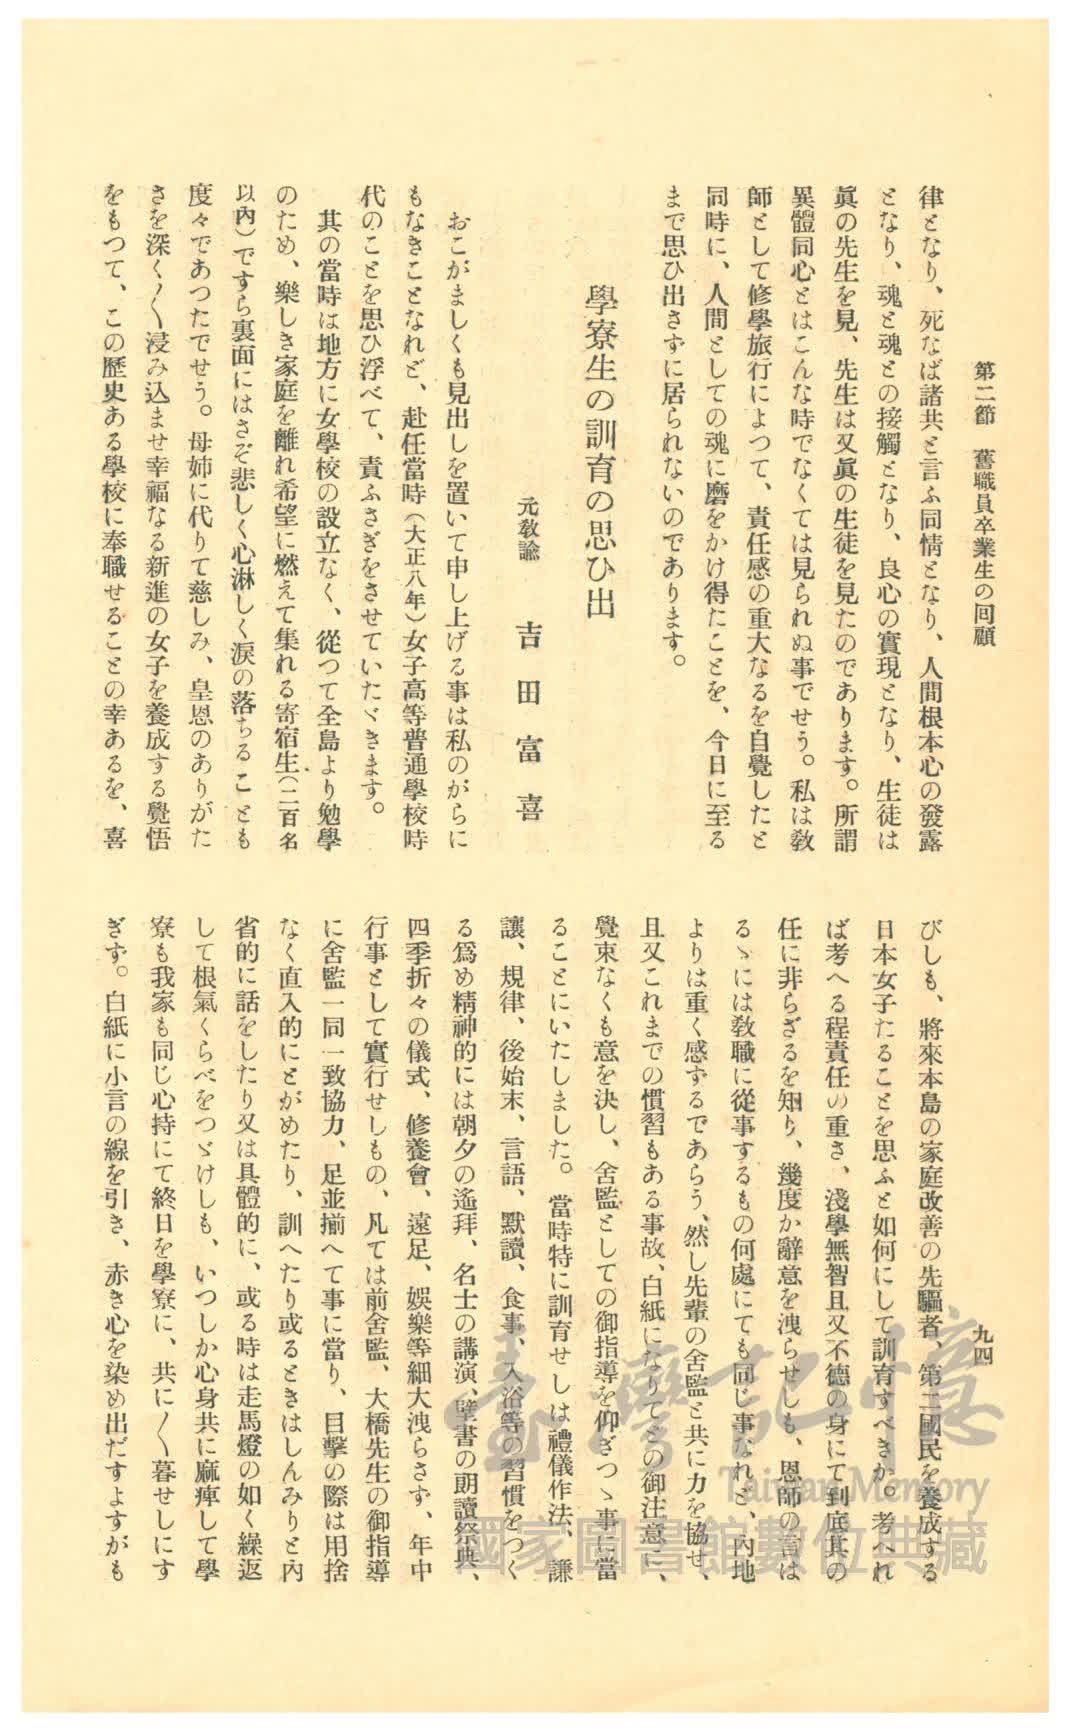 第二節　舊職員卒業生の回顧
九四
律となり、死なば諸共と言ふ同情となり、人間根本心の發露
となり、魂と魂との接觸となり、良心の實現となり、生徒は
眞の先生を見、先生は又眞の生徒を見たのであります。所謂
異體同心とはこんな時でなくては見られぬ事でせう。私は教
師として修學旅行によつて、責任感の重大なるを自覺したと
同時に、人間としての魂に磨をかけ得たことを、今日に至る
まで思ひ出さずに居られないのであります。
學寮生の訓育の思ひ出
元教諭　吉田富喜
おこがましくも見出しを置いて申し上げる事は私のがらに
もなきことなれど、赴任當時（大正八年）女子高等普通學校時
代のことを思ひ浮べて、責ふさぎをさせていたゞきます。
其の當時は地方に女學校の設立なく、從つて全島より勉學
のため、樂しき家庭を離れ希望に燃えて集れる寄宿生（二百名
以內）ですら裏面にはさぞ悲しく心淋しく涙の落ちることも
度々であつたでせう。母姉に代りて慈しみ、皇恩のありがた
さを深く〳〵浸み込ませ幸福なる新進の女子を養成する覺悟
をもつて、この歷史ある學校に奉職せることの幸あるを、喜
びしも、將來本島の家庭改善の先驅者、第二國民を養成する
日本女子たることを思ふと如何にして訓育すべきか。考へれ
ば考へる程責任の重さ、淺學無智且又不德の身にて到底其の
任に非らざるを知り、幾度か辭意を洩らせしも、恩師の言は
るゝには教職に從事するもの何處にても同じ事なれど、內地
よりは重く感ずるであらう、然し先輩の舍監と共に力を協せ、
且又これまでの慣習もある事故、白紙になりてとの御注意に、
覺束なくも意を決し、舍監としての御指導を仰ぎつゝ事に當
ることにいたしました。當時特に訓育せしは禮儀作法、謙
讓、規律、後始末、言語、默讀、食事、入浴等の習慣をつく
る爲め精神的には朝夕の遙拜、名士の講演、壁書の朗讀祭典、
四季折々の儀式、修養會、遠足、娛樂等細大洩らさず、年中
行事として實行せしもの、凡ては前舍監、大橋先生の御指導
に舍監一同一致協力、足並揃へて事に當り、目擊の際は用捨
なく直入的にとがめたり、訓へたり或るときはしんみりと內
省的に話をしたり又は具體的に、或る時は走馬燈の如く繰返
して根氣くらべをつゞけしも、いつしか心身共に麻痺して學
寮も我家も同じ心持にて終日を學寮に、共に〳〵暮せしにす
ぎず。白紙に小言の線を引き、赤き心を染め出だすよすがも
臺灣記憶
Taiwan Memory
國家圖書館數位典藏